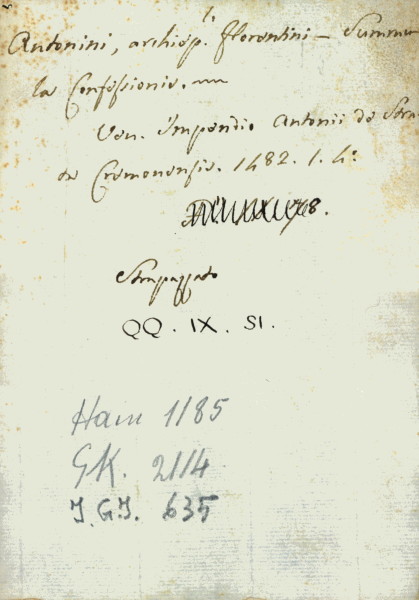 1.
Antonini, archiep. florentini – Summu
la Confessionis.
Ven. Impendio Antonii de Stra
ta Cremonensis. 1482. 1. 4º
8.
Strapazzato
QQ. IX. 51.
Hain 1185
GK. 2114
I.G.I. 635